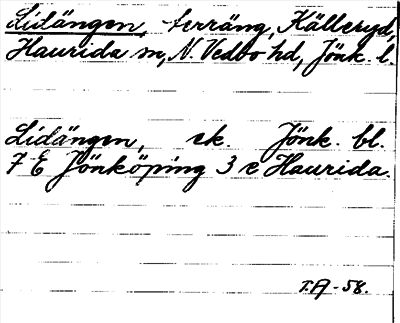 Lidängen, terräng, Källeryd,
Haurida sn, N. Vedbo hd, Jönk. l.
Lidängen, ek. Jönk. bl.
7 E Jönköping 3 e Haurida.
T.A-58.